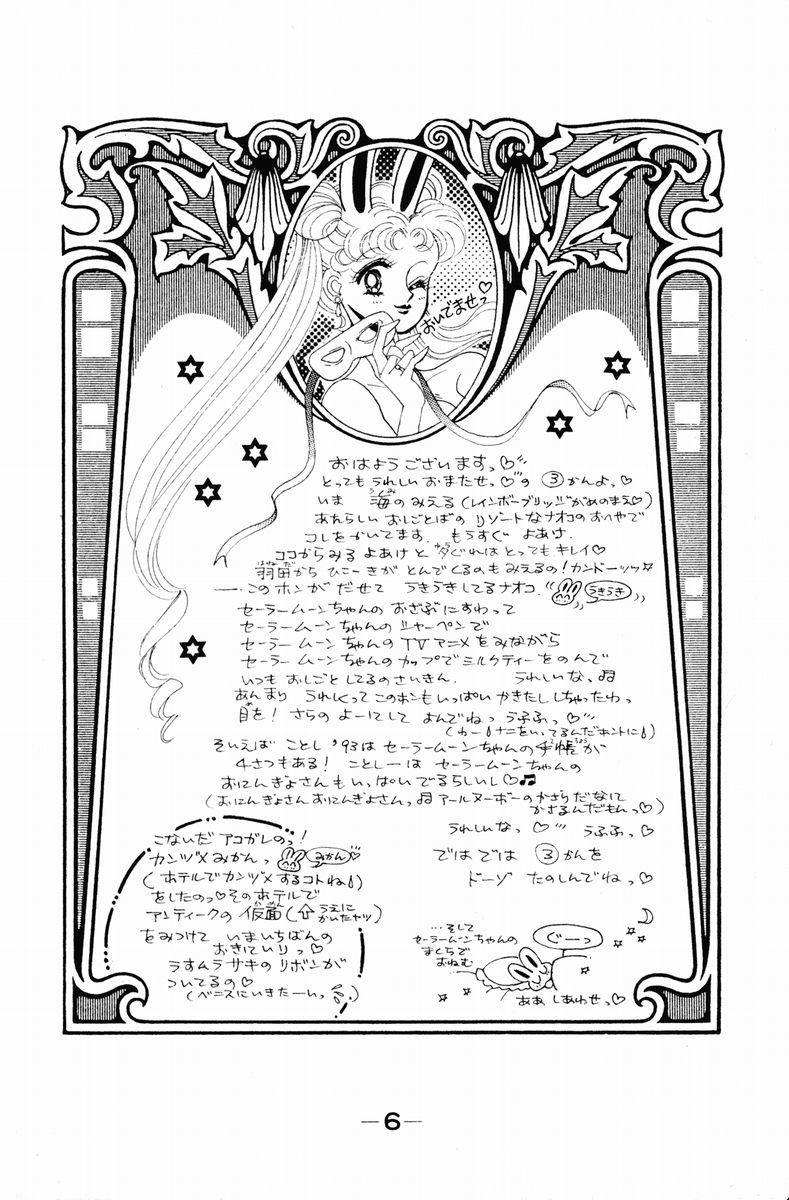 おいでませっ♡
おはようございますっ♡
とってもうれしい おまたせっ♡の ③かんよっ♡
いま 海のみえる (レインボーブリッジがめのまえ♡)
あたらしい おしごとばの リゾートなナオコのおへやで
コレをかいてます. もうすぐ よあけ.
ココからみる よあけと 夕ぐれは とっても キレイ♡
羽田から ひこーきが とんでくるのもみえるの! カンドーッッ☆
──このホンが だせて うきうきしてるナオコ.
うきうき
セーラームーンちゃんの おざぶにすわって
セーラームーンちゃんの シャーペンで
セーラームーンちゃんの TVアニメをみながら
セーラームーンちゃんの カップで ミルクティーをのんで
いつも おしごとしてるの さいきん. うれしいなっ♫
あんまり うれしくって このホンもいっぱい かきたし しちゃったわっ
目を! さらの よーにして よんでねっ うふふっ♡
(わーナニをいってるんだホントに)
そいえば ことし '93は セーラームーンちゃんの 手帳が
4さつもある! ことしーは セーラームーンちゃんの
おにんぎょさんも いっぱい でるらしいし♡♫
(おにんぎょさん おにんぎょさんっ♫ アールヌーボーの かざりだなに
かざるんだもんっ♡)
うれしいなっ♡ うふふっ♡
では では ③かんを
ドーゾ たのしんでねっ♡
こないだ アコガレのっ!
カンヅメ みかんっ
みかん
(ホテルで カンヅメ するコトね)
をしたのっ♡ そのホテルで
アンティークの 仮面 (⇧うえに
かいたヤツ)
をみつけて いまいちばんの
おきにいりっ♡
うすムラサキの リボンが
ついてるの♡
(ベニスにいきたーいっ)
…そして
セーラームーンちゃんの
まくらで
おねむ
ぐーっ
ああ しあわせっ♡
—6—